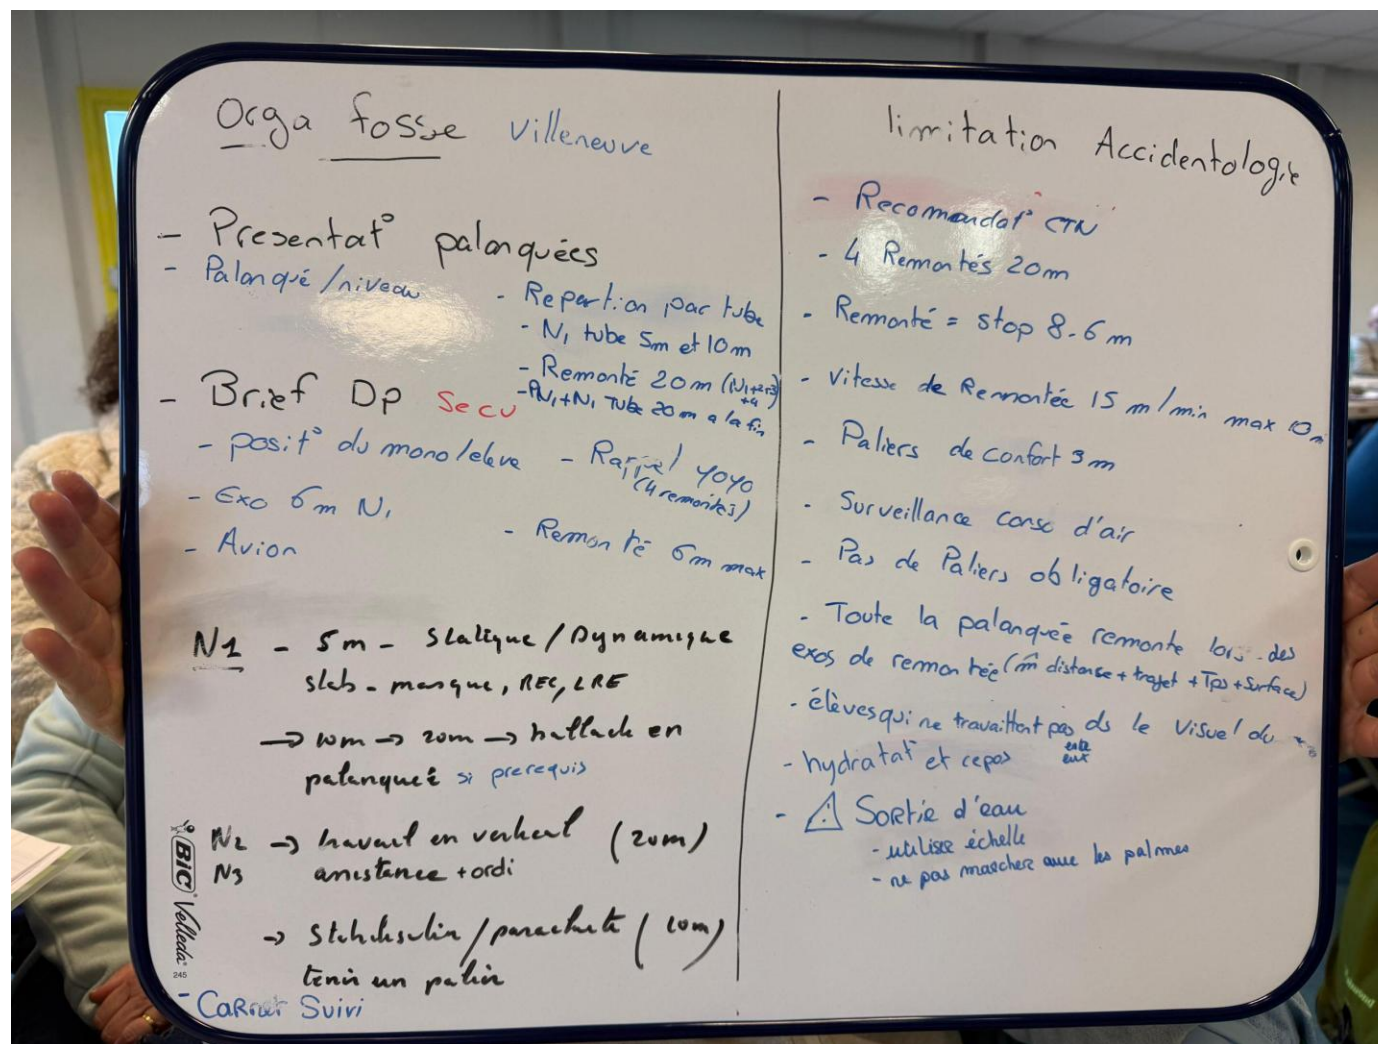 Orga fosse Villeneuve
- Presentat° palanquées
- Palanqué/niveau
- Repartion par tube
- N1 tube 5m et 10m
- Remonté 20m (N1+2+3
+4)
- PN1+N1 Tube 20m a la fin
- Brief DP Secu
- posit° du mono/eleve
- Exo 6m N1
- Avion
- Rappel yoyo
(4 remontés)
- Remonté 6m max
N1 - 5m - Statique/Dynamique
stab - masque, REC, LRE
→ 10m → 20m → ballade en
palanquée si prerequis
N2 → travail en vertical (20m)
N3 assistance + ordi
→ Stabilisation/parachute (10m)
tenir un palier
- Carnet Suivi
BIC Velleda
245
limitation Accidentologie
- Recomandat° CTN
- 4 Remontés 20m
- Remonté = stop 8-6m
- Vitesse de Remontée 15 m/min max 10m
- Paliers de confort 3m
- Surveillance conso d'air
- Pas de Paliers obligatoire
- Toute la palanquée remonte lors des
exos de remontée (m̂ distance + trajet + Tps + Surface)
- élèves qui ne travaillent pas ds le Visuel du
entre
eux
- hydratat° et repos
- ⚠ Sortie d'eau
- utiliser échelle
- ne pas marcher avec les palmes